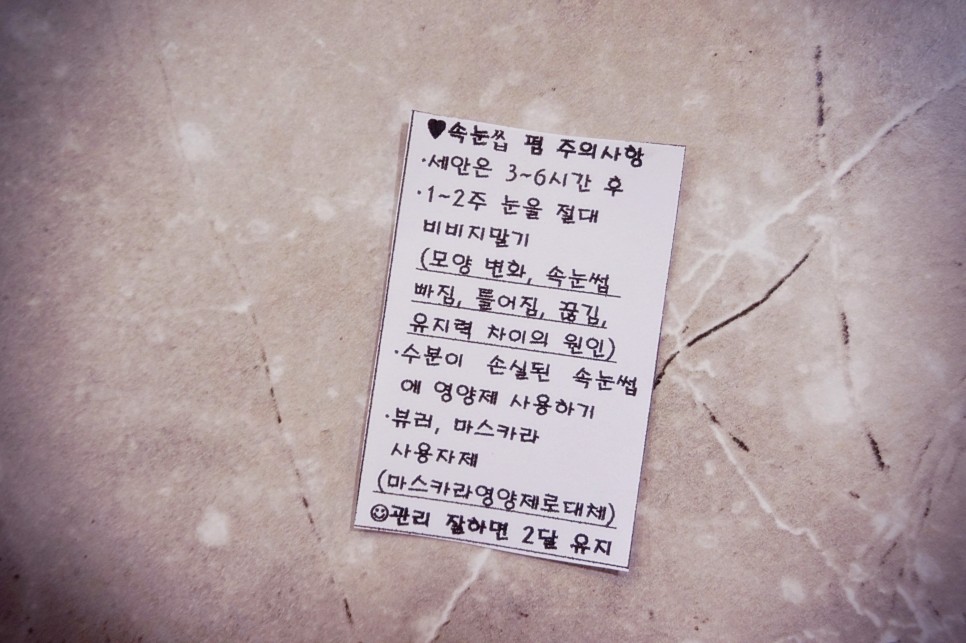 ♥속눈썹 펌 주의사항
·세안은 3~6시간 후
·1~2주 눈을 절대
비비지말기
(모양 변화, 속눈썹
빠짐, 틀어짐, 끊김,
유지력 차이의 원인)
·수분이 손실된 속눈썹
에 영양제 사용하기
·뷰러, 마스카라
사용자제
(마스카라영양제로대체)
☺관리 잘하면 2달 유지